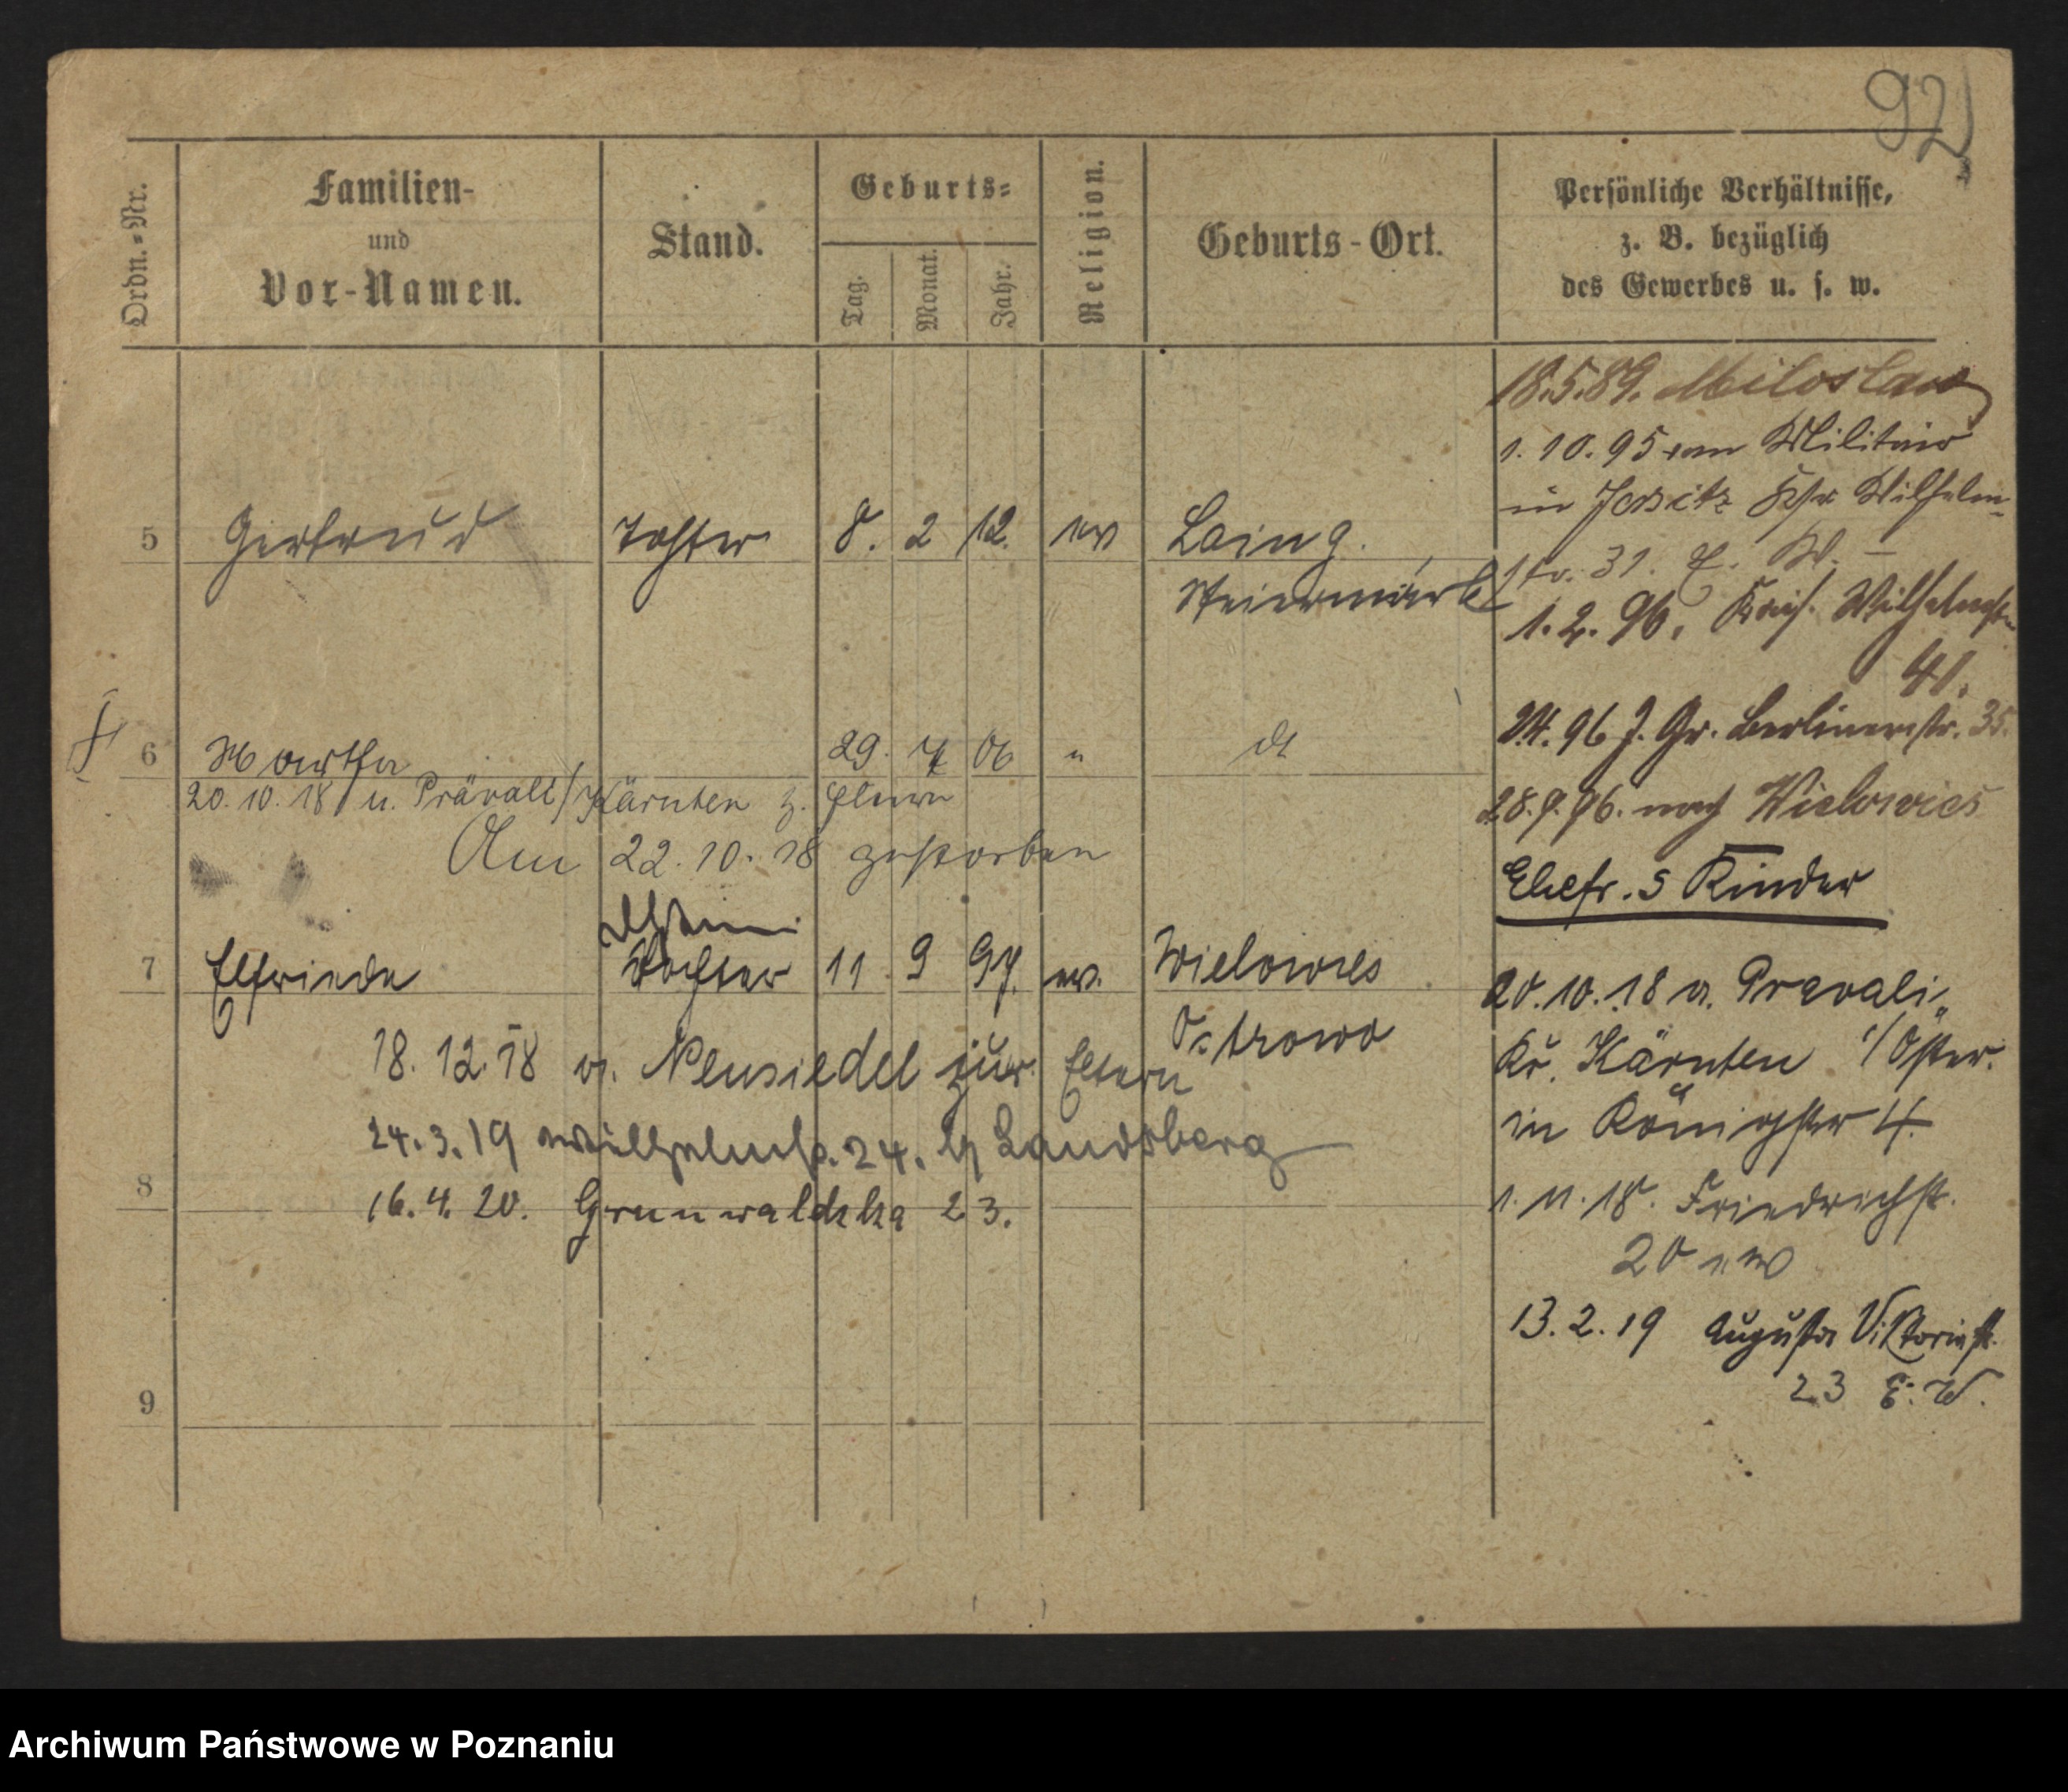 92
Ordn.-Nr.
Familien-
und
Vor-Namen.
Stand.
Geburts-
Tag.
Monat.
Jahr.
Religion.
Geburts-Ort.
Persönliche Verhältnisse,
z. B. bezüglich
des Gewerbes u. s. w.
5 Gertrud Tochter 8. 2 12. ev Laing.
Steiermark
6 Martha 29. 7 06 "
20.10.18 v. Prävali/Kärnten z. Eltern
Am 22.10.18 gestorben
7 Elfriede Tochter 11. 9 97. ev. Wielowies
Ostrowo
18.12.18 v. Neusiedel zur. Eltern
24.3.19 Wilhelmstr. 24. b/ Landsberg
8
16.4.20. Grunwaldzka 23.
9
18.5.89. Miloslaw
1.10.95 vom Militair
in Jersitz Wilhelm-
str. 31.
1.2.96. Kais. Wilhelmstr
41.
96 J. Gr. Berlinerstr. 35.
28.9.96. nach Wielowies
Ehefr. 5 Kinder
20.10.18 v. Prävali,
Kr. Kärnten i/Öster.
in Königstor 4.
1.11.18. Friedrichstr.
20
13.2.19 Augusta Viktoriastr.
23 E. W.
Archiwum Państwowe w Poznaniu